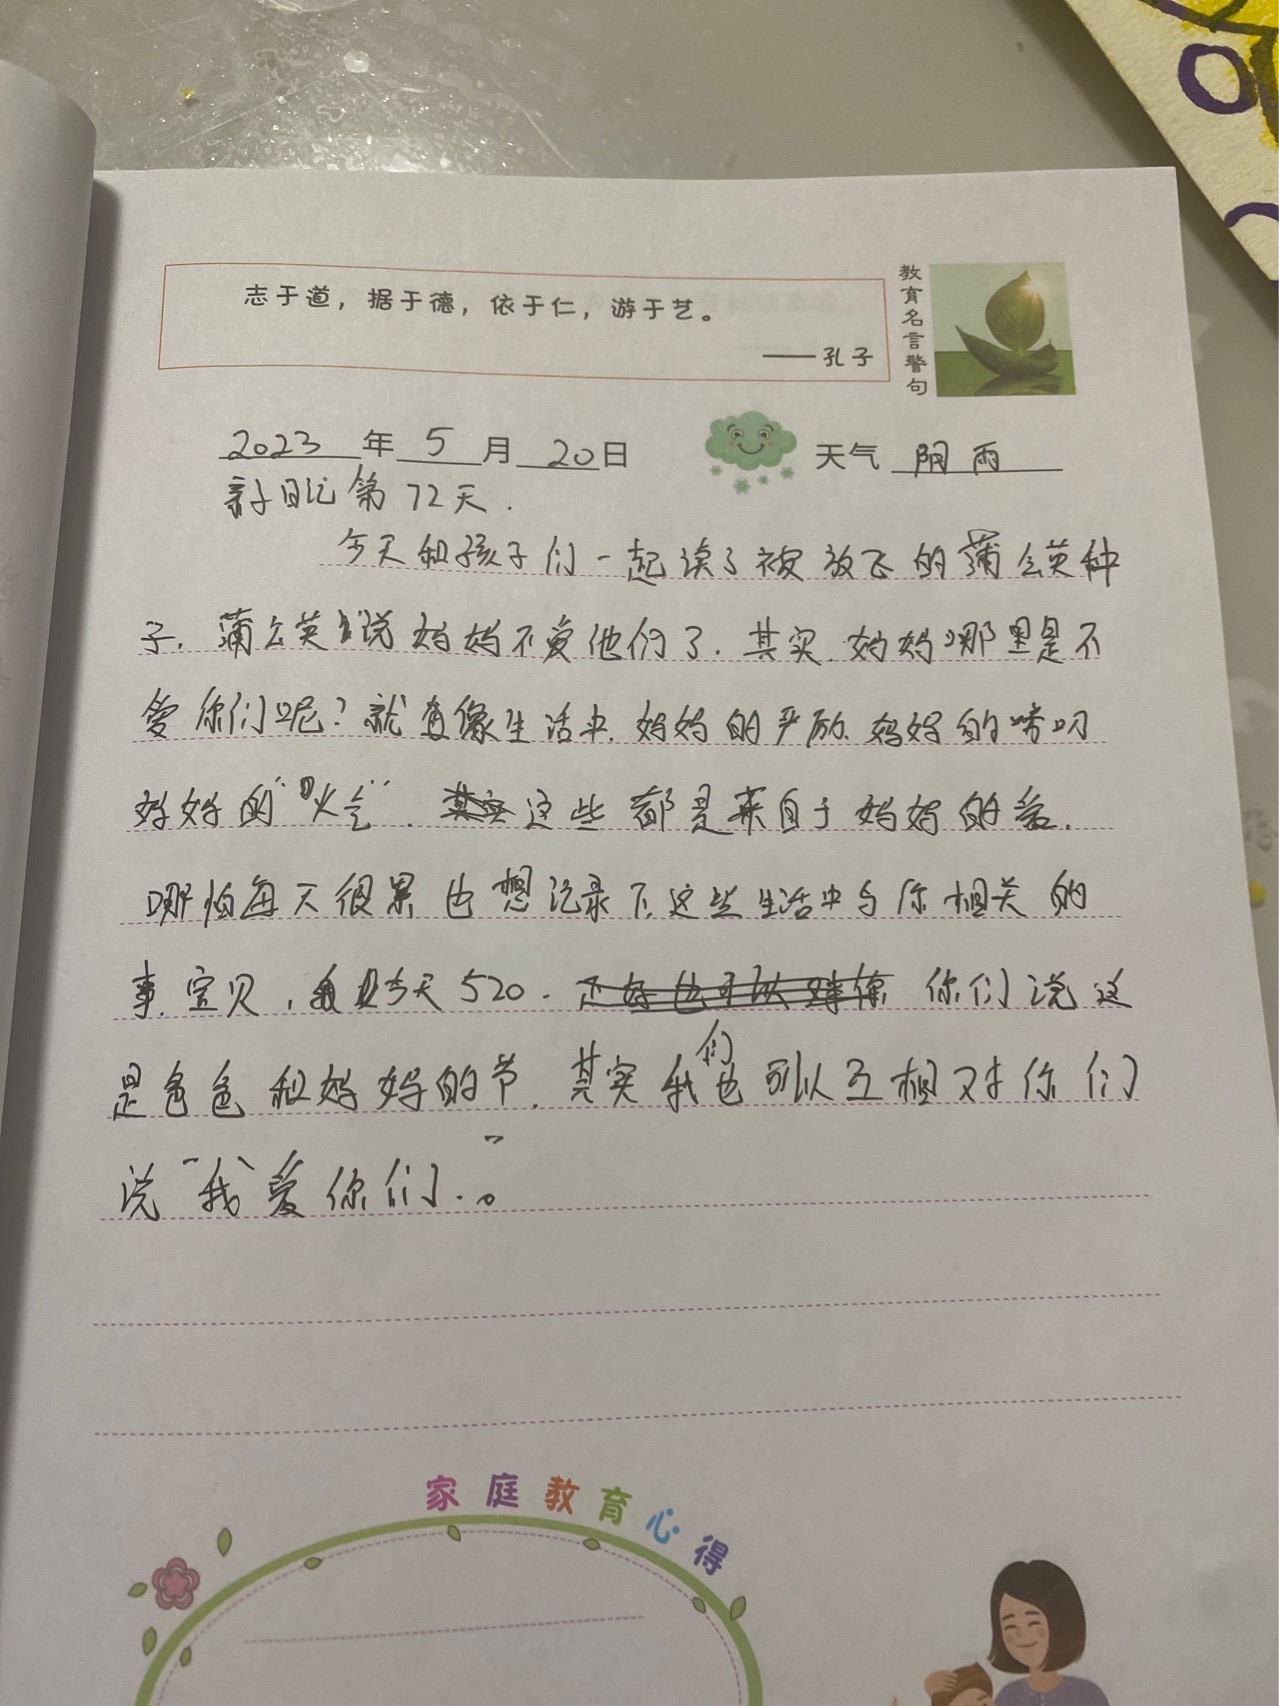 志于道，据于德，依于仁，游于艺。
——孔子
教育名言警句
2023年5月20日
天气 阴雨
亲子日记第72天.
今天和孩子们一起读了被放飞的蒲公英种
子. 蒲公英说妈妈不爱他们了. 其实. 妈妈哪里是不
爱你们呢? 就像生活中. 妈妈的严厉. 妈妈的唠叨
妈妈的“火气”. 这些都是来自于妈妈的爱.
哪怕每天很累也想记录下这些生活中与你相关的
事. 宝贝, 今天520. 你们说这
是爸爸和妈妈的节. 其实我们也可以互相对你们
说“我爱你们.”。
家庭教育心得